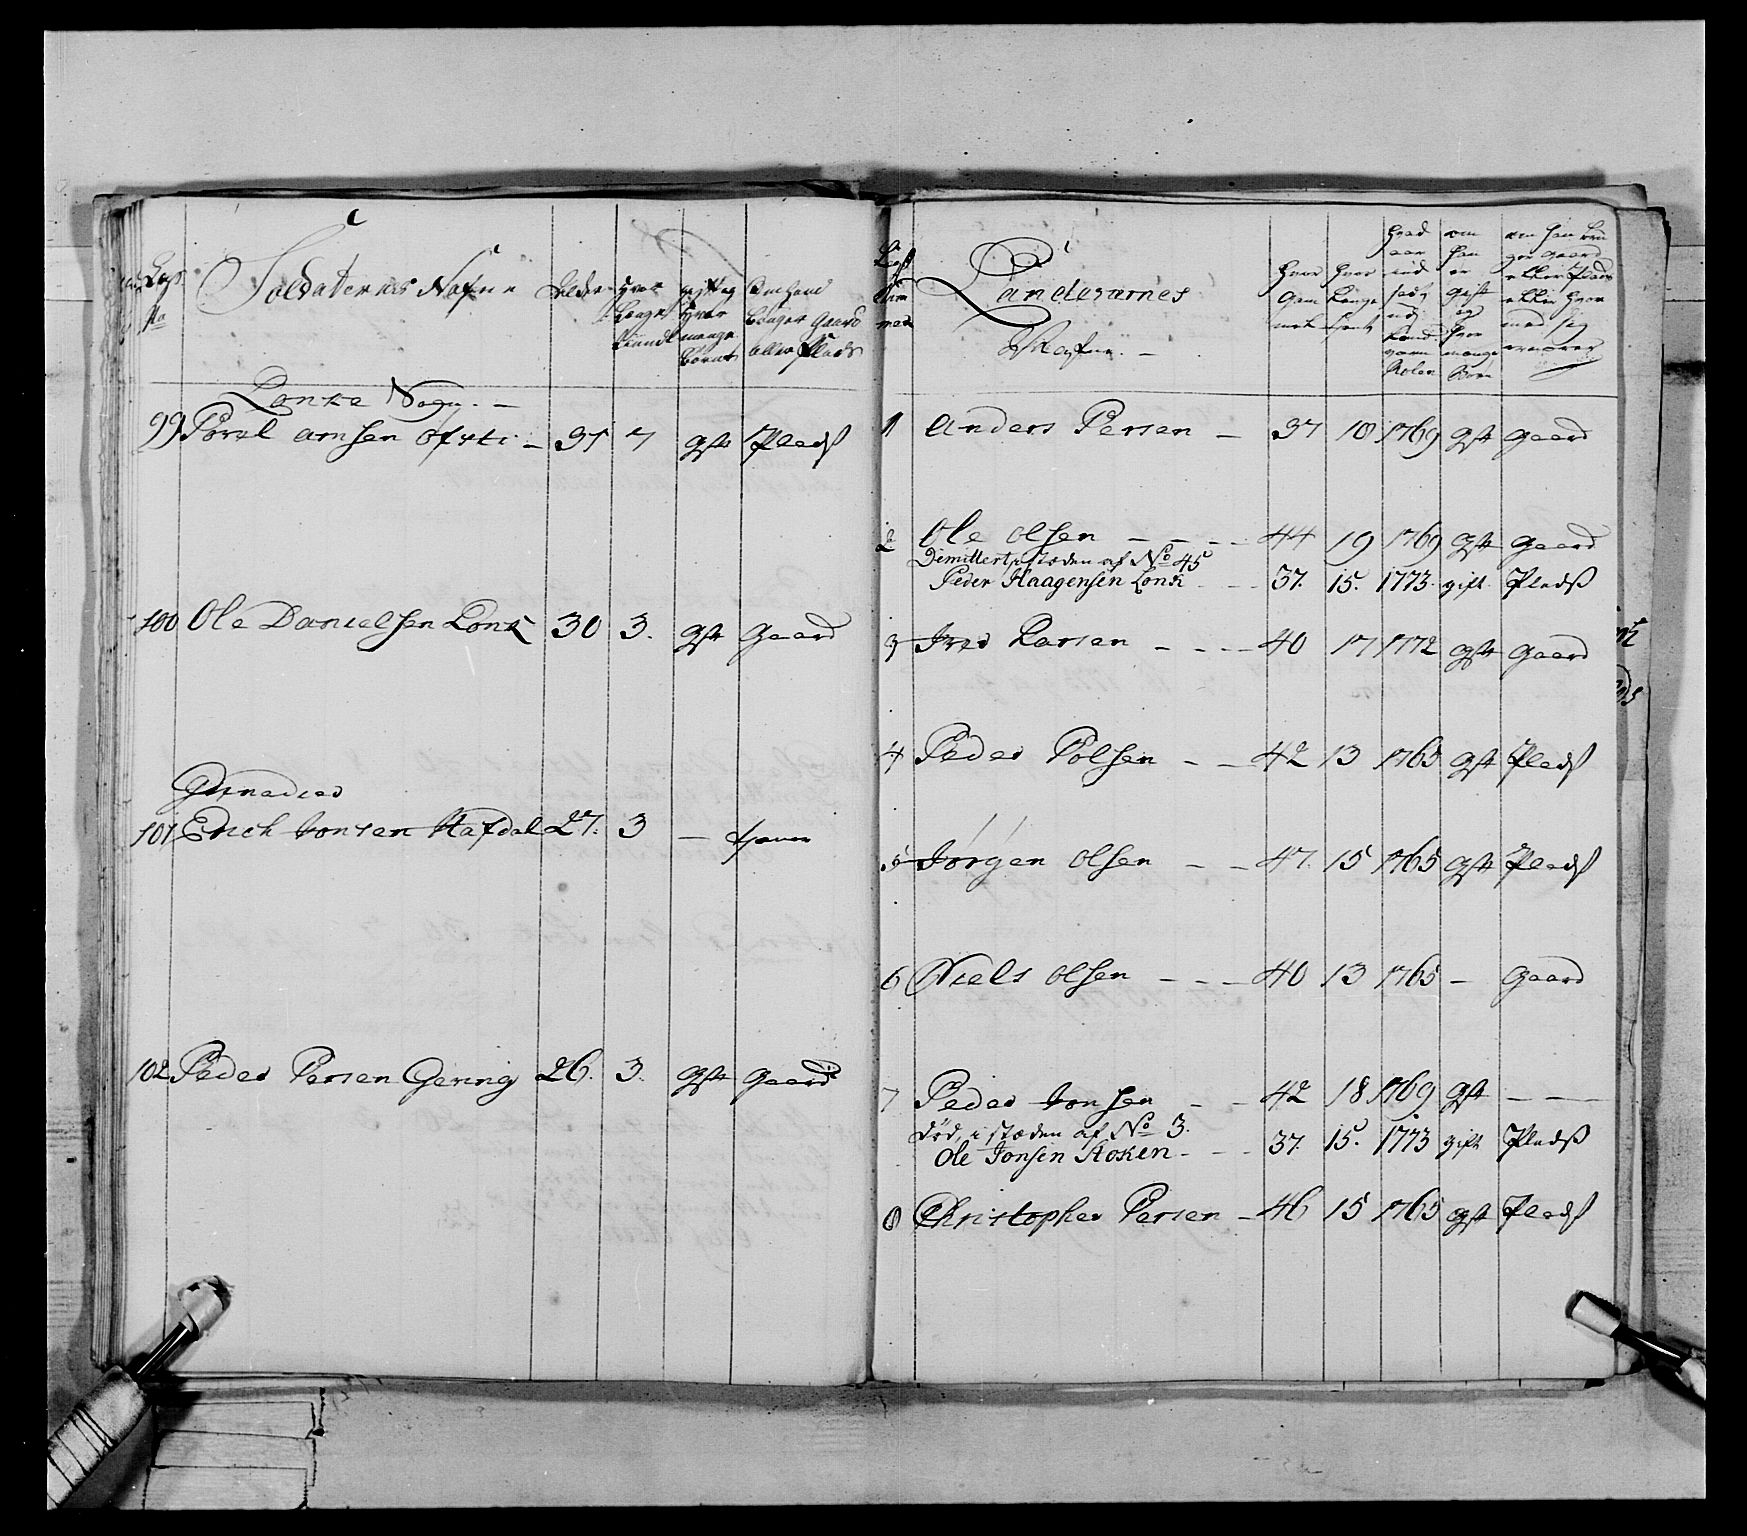 Soldaternes Nafne
Alder
Hvor
Længe
tiendt
gift og
Hvor
mange
Børn
Om Hand
bruger Gaard
eller Plads
Lonke Sogn. —
99 Povel Arnsen Øfsti — 37 7 gift Plads
100 Ole Danielsen Lonk 30 3. gift Gaard
Grenader
101 Erich Jonsen Hafdal 27. 3 —
102 Peder Persen Gering 26. 3. gift Gaard
Landeværnes
Nafne. —
Hvor
Gam
mel
Hvor
Længe
tient
Hvad
aar
ind
sadt
ud
Land
værn
Rolen
om
han
er
gift
og
Hvor
mange
Børn
om han bru
ger gaard
eller Plads
eller Hvor
med sig
ernærer
1 Anders Persen — 37 10 1769 gift Gaard
2 Ole Olsen — — — 44 19 1769 gift Gaard
Dimittert i stæden af No 45
Peder Haagensen Lonk — 37. 15. 1773. gift. Pladsß
3 Iver Larsen — — — 40 17 1772 gift Gaard
4 Peder Polsen — — 42 13 1765 gift Plads
5 Jørgen Olsen — — 47. 15 1765 gift Plads
6 Niels Olsen — — — 40 13 1765 — Gaard
7 Peder Jonsen — — 42 18 1769 gift — —
død, i stæden af No 3.
Ole Jonsen Stoken — — 37. 15. 1773 gift Pladsß
8 Christopher Persen — 46 15 1765 gift Plads